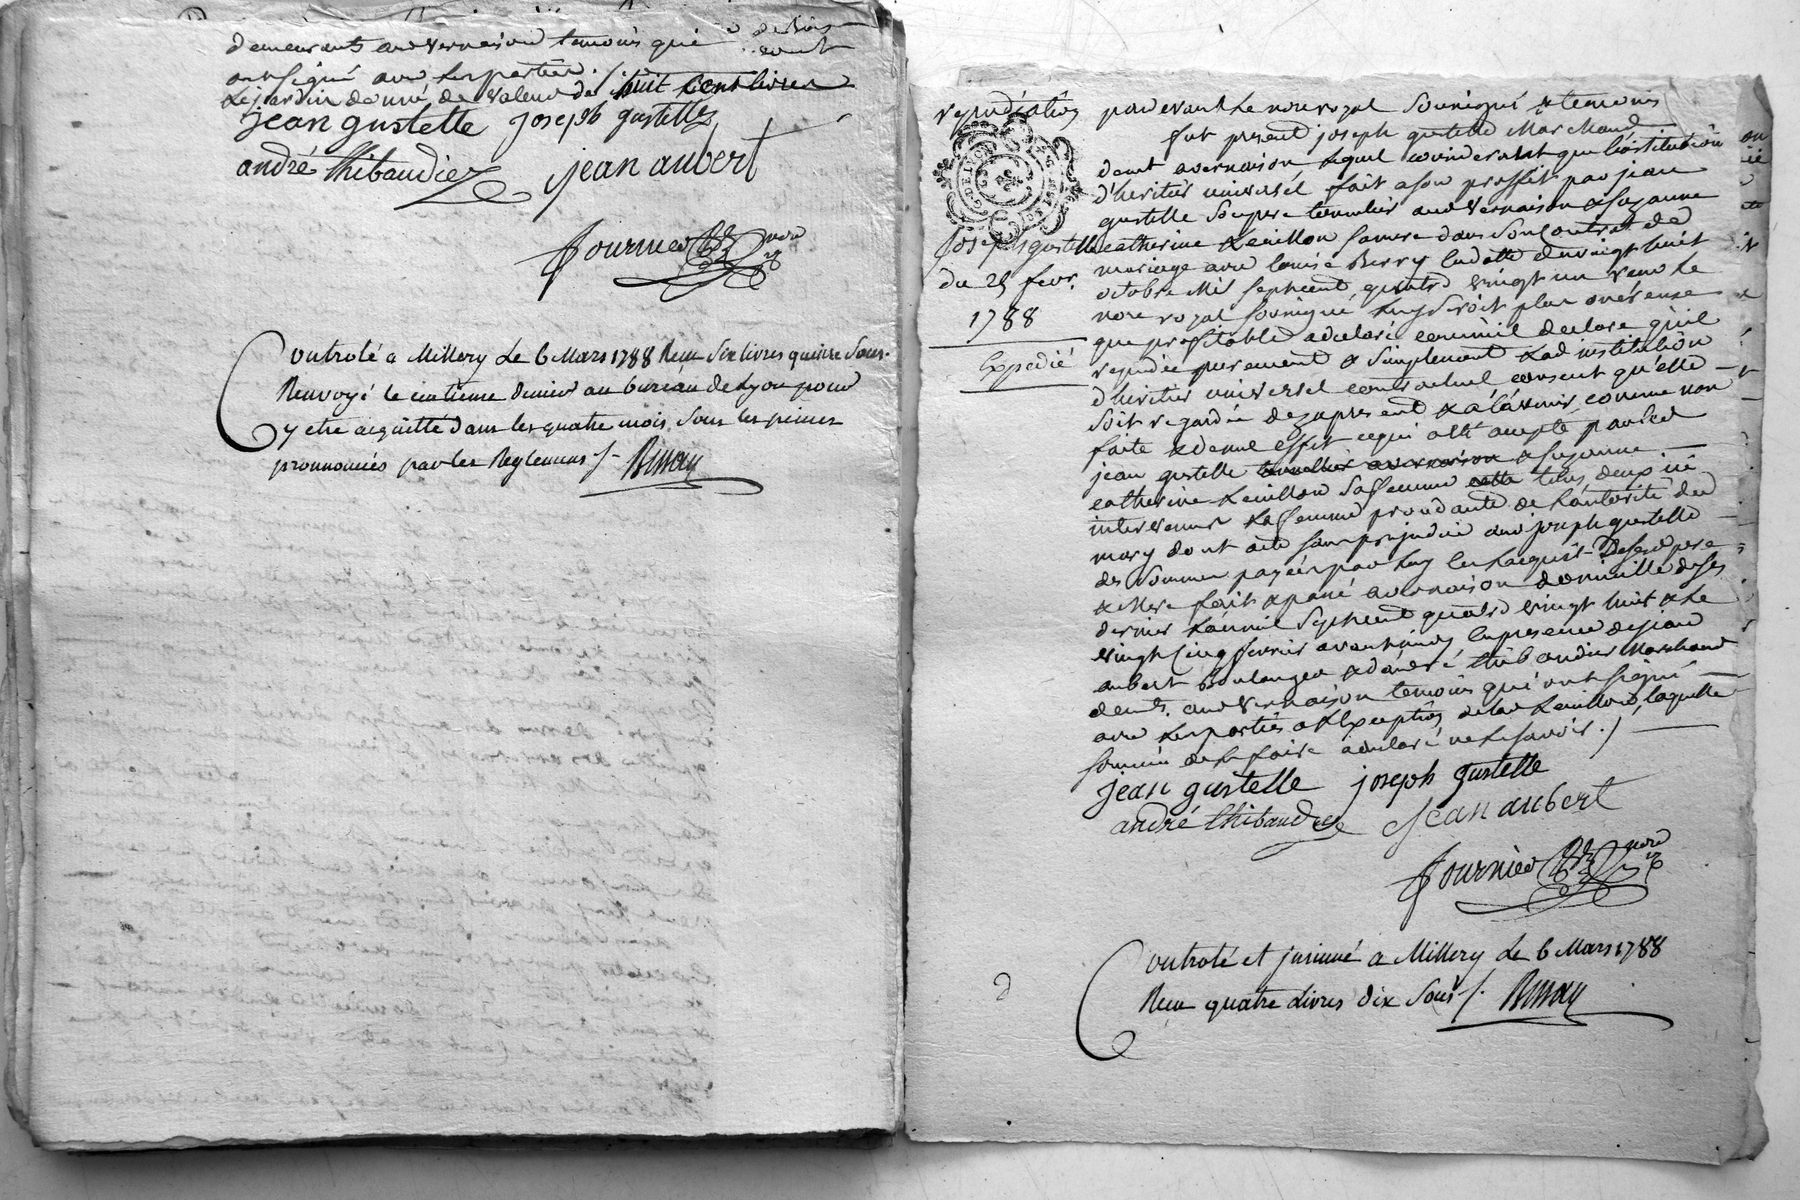 demeurants aud Vernaison temoins qui
ont signé avec les parties ./.
le jardin donné de valeur de huit cent livres
jean gustelle joseph gustelle
andré thibaudier jean aubert
fournier nore
Controlé a Millery le 6 Mars 1788 Reçu Six livres quinze Sous.
Renvoyé le centieme denier au bureau de Lyon pour
y etre acquitté dans les quatre mois, sous les peines
prononcées par les Reglemens /.
repudiation
joseph gustelle
du 25 fevr.
1788
Expedié
pardevant Le nore royal Soussigné & temoins
fut present joseph gustelle Marchand
demt a vernaison Lequel considerant que l'institution
d'heritier universel fait a son proffit par jean
gustelle Son pere tonnelier aud Vernaison & Suzanne
catherine Leuillon Sa mere dans Son Contrat de
mariage avec louise Berry en datte du vingt huit
octobre Mil Sept cent quatre vingt un reçu Le
nore royal Soussigné Luy Seroit plus onéreuse
que profitable a declaré comme il declare qu'il
repudie purement & Simplement Lad institution
d'heritier universel consent qu'elle
Soit regardée dez a present & a l'avenir comme non
faite & de nul effet ce qui a été accepté par led
jean gustelle tonnelier a vernaison & Suzanne
catherine Leuillon Sa femme cette tous deux icy
intervenus La femme procedante de L'autorité dud
mary dont acte sans prejudice aud joseph gustelle
des Sommes payées par luy en L'acquit de Sesd pere
& Mere fait & passé a vernaison domicille de Ses
derniers L'an mil Sept cent quatre vingt huit & Le
vingt cinq fevrier avant midy En presence de jean
aubert Boulanger & d'andré thibaudier Marchand
demts. aud Vernaison temoins qui ont signé
avec les parties a L'exception de lad Leuillon, laquelle
sommée de le faire a declaré ne le savoir ./.
jean gustelle joseph gustelle
andré thibaudier jean aubert
fournier nore
Controlé et insinué a Millery le 6 Mars 1788
Reçu quatre livres dix Sous /.